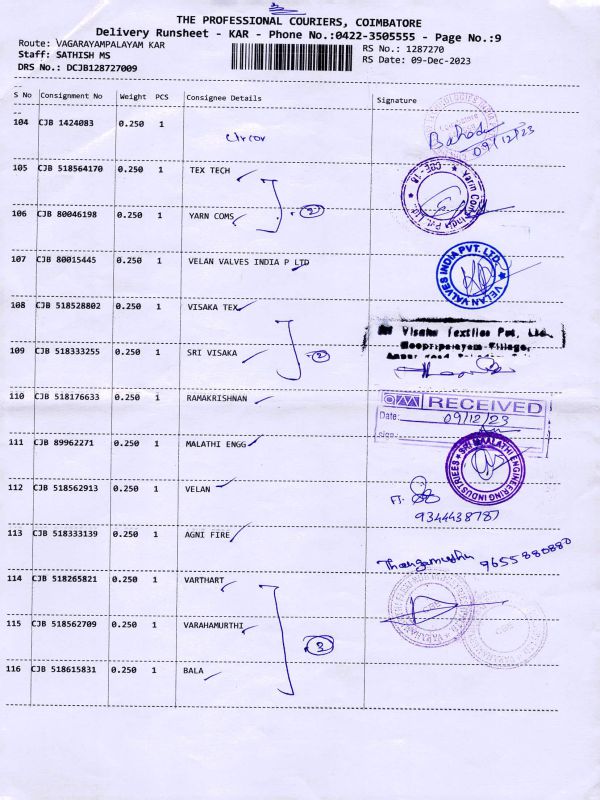 THE PROFESSIONAL COURIERS, COIMBATORE
Delivery Runsheet - KAR - Phone No.:0422-3505555 - Page No.:9
Route: VAGARAYAMPALAYAM KAR
RS No.: 1287270
Staff: SATHISH MS
RS Date: 09-Dec-2023
DRS No.: DCJB128727009
S No Consignment No Weight PCS Consignee Details Signature
104 CJB 1424083 0.250 1
09/12/23
105 CJB 518564170 0.250 1 TEX TECH
106 CJB 80046198 0.250 1 YARN COMS 2
107 CJB 80015445 0.250 1 VELAN VALVES INDIA P LTD
VELAN VALVES INDIA PVT. LTD.
108 CJB 518528802 0.250 1 VISAKA TEX
Visaka Textiles Pvt. Ltd.
109 CJB 518333255 0.250 1 SRI VISAKA 2
110 CJB 518176633 0.250 1 RAMAKRISHNAN
RECEIVED
Date: 09/12/23
Sign
111 CJB 89962271 0.250 1 MALATHI ENGG
SRI MAALATHI ENGINEERING INDUSTRIEES
112 CJB 518562913 0.250 1 VELAN
9344438787
113 CJB 518333139 0.250 1 AGNI FIRE
9655880880
114 CJB 518265821 0.250 1 VARTHART
115 CJB 518562709 0.250 1 VARAHAMURTHI 3
116 CJB 518615831 0.250 1 BALA